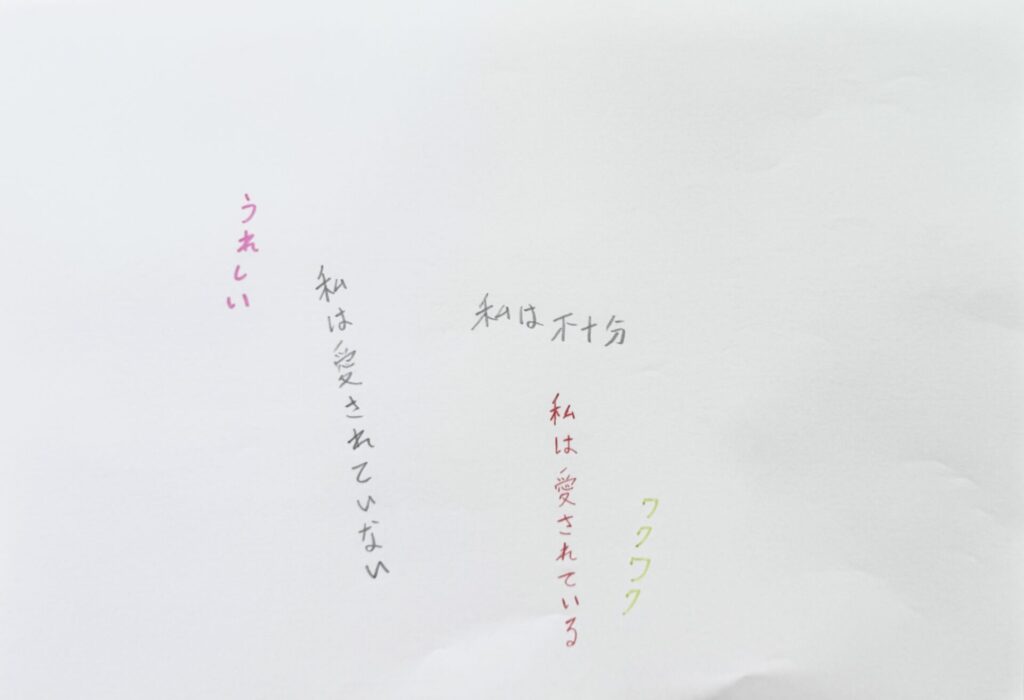 うれしい
私は愛されていない
私は不十分
私は愛されている
ワクワク